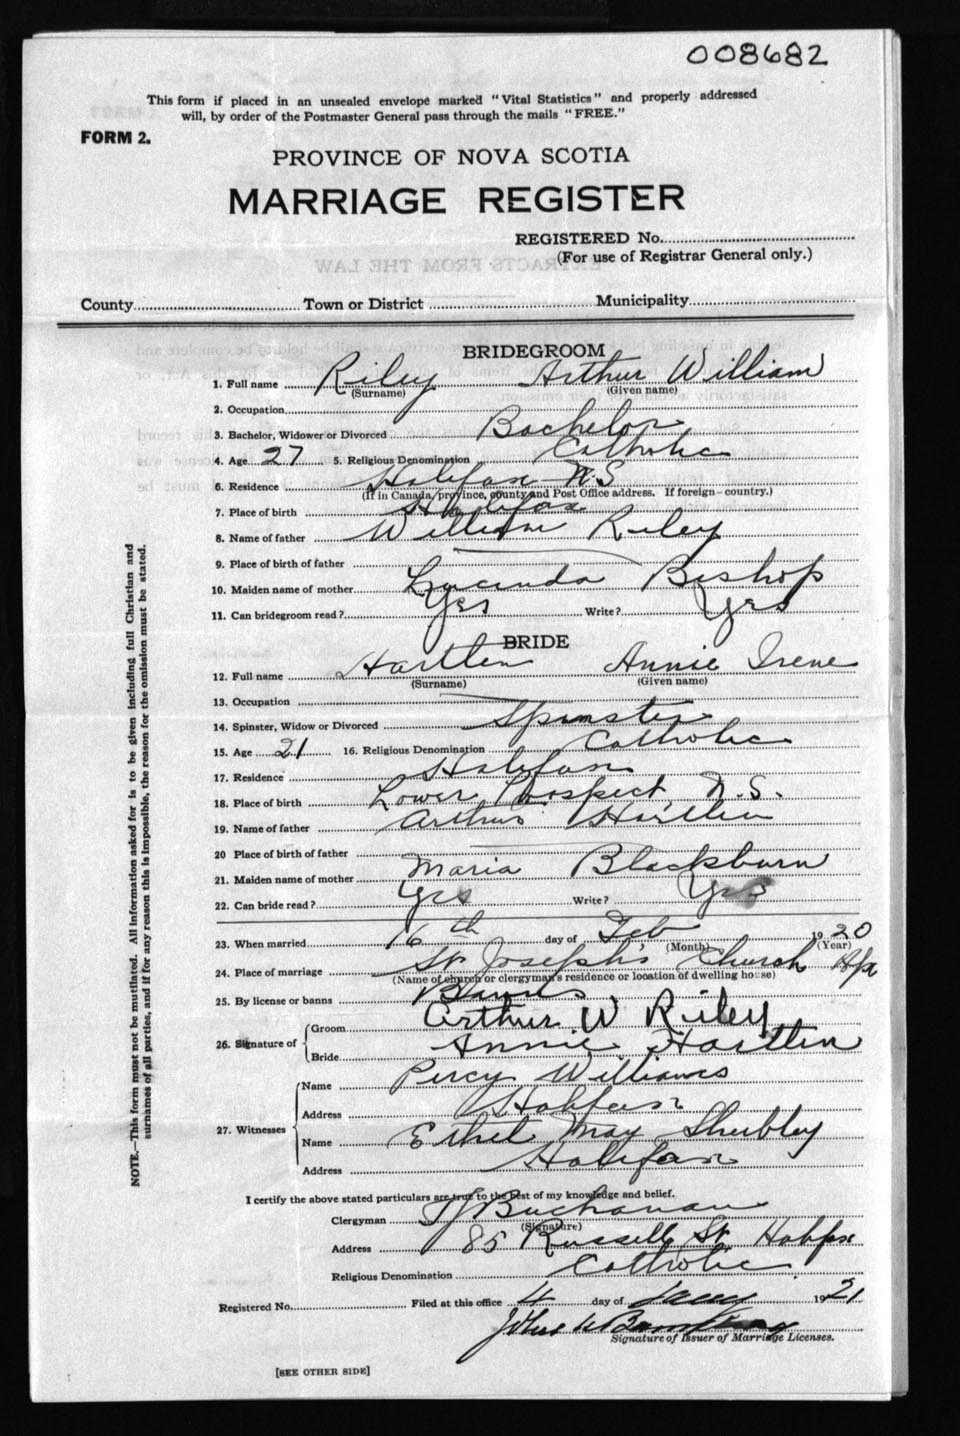 008682
This form if placed in an unsealed envelope marked "Vital Statistics" and properly addressed
will, by order of the Postmaster General pass through the mails "FREE."
FORM 2.
PROVINCE OF NOVA SCOTIA
MARRIAGE REGISTER
REGISTERED No.
(For use of Registrar General only.)
County Town or District Municipality
BRIDEGROOM
1. Full name Riley Arthur William
(Surname) (Given name)
2. Occupation
3. Bachelor, Widower or Divorced Bachelor
4. Age 27 5. Religious Denomination Catholic
6. Residence Halifax N.S
(If in Canada, province, county and Post Office address. If foreign-country.)
7. Place of birth Halifax
8. Name of father William Riley
9. Place of birth of father
10. Maiden name of mother Lucinda Bishop
11. Can bridegroom read? Yes Write? Yes
BRIDE
12. Full name Hartlen Annie Irene
(Surname) (Given name)
13. Occupation
14. Spinster, Widow or Divorced Spinster
15. Age 21 16. Religious Denomination Catholic
17. Residence Halifax
18. Place of birth Lower Prospect, N.S.
19. Name of father Arthur Hartlen
20 Place of birth of father
21. Maiden name of mother Maria Blackburn
22. Can bride read? Yes Write? Yes
23. When married 16th day of Feb 1920
(Month) (Year)
24. Place of marriage St Joseph's Church Hfx
(Name of church or clergyman's residence or location of dwelling house)
25. By license or banns Banns
26. Signature of Groom Arthur W Riley
Bride Annie Hartlen
27. Witnesses Name Percy Williams
Address Halifax
Name Ethel May Shubley
Address Halifax
I certify the above stated particulars are true to the best of my knowledge and belief.
Clergyman Buchanan
(Signature)
Address 85 Russell St Halifax
Religious Denomination Catholic
Registered No. Filed at this office 4 day of Jany 1921
Signature of Issuer of Marriage Licenses.
[SEE OTHER SIDE]
NOTE.—This form must not be mutilated. All information asked for is to be given including full Christian and
surnames of all parties, and if for any reason this is impossible, the reason for the omission must be stated.
EXTRACTS FROM THE LAW